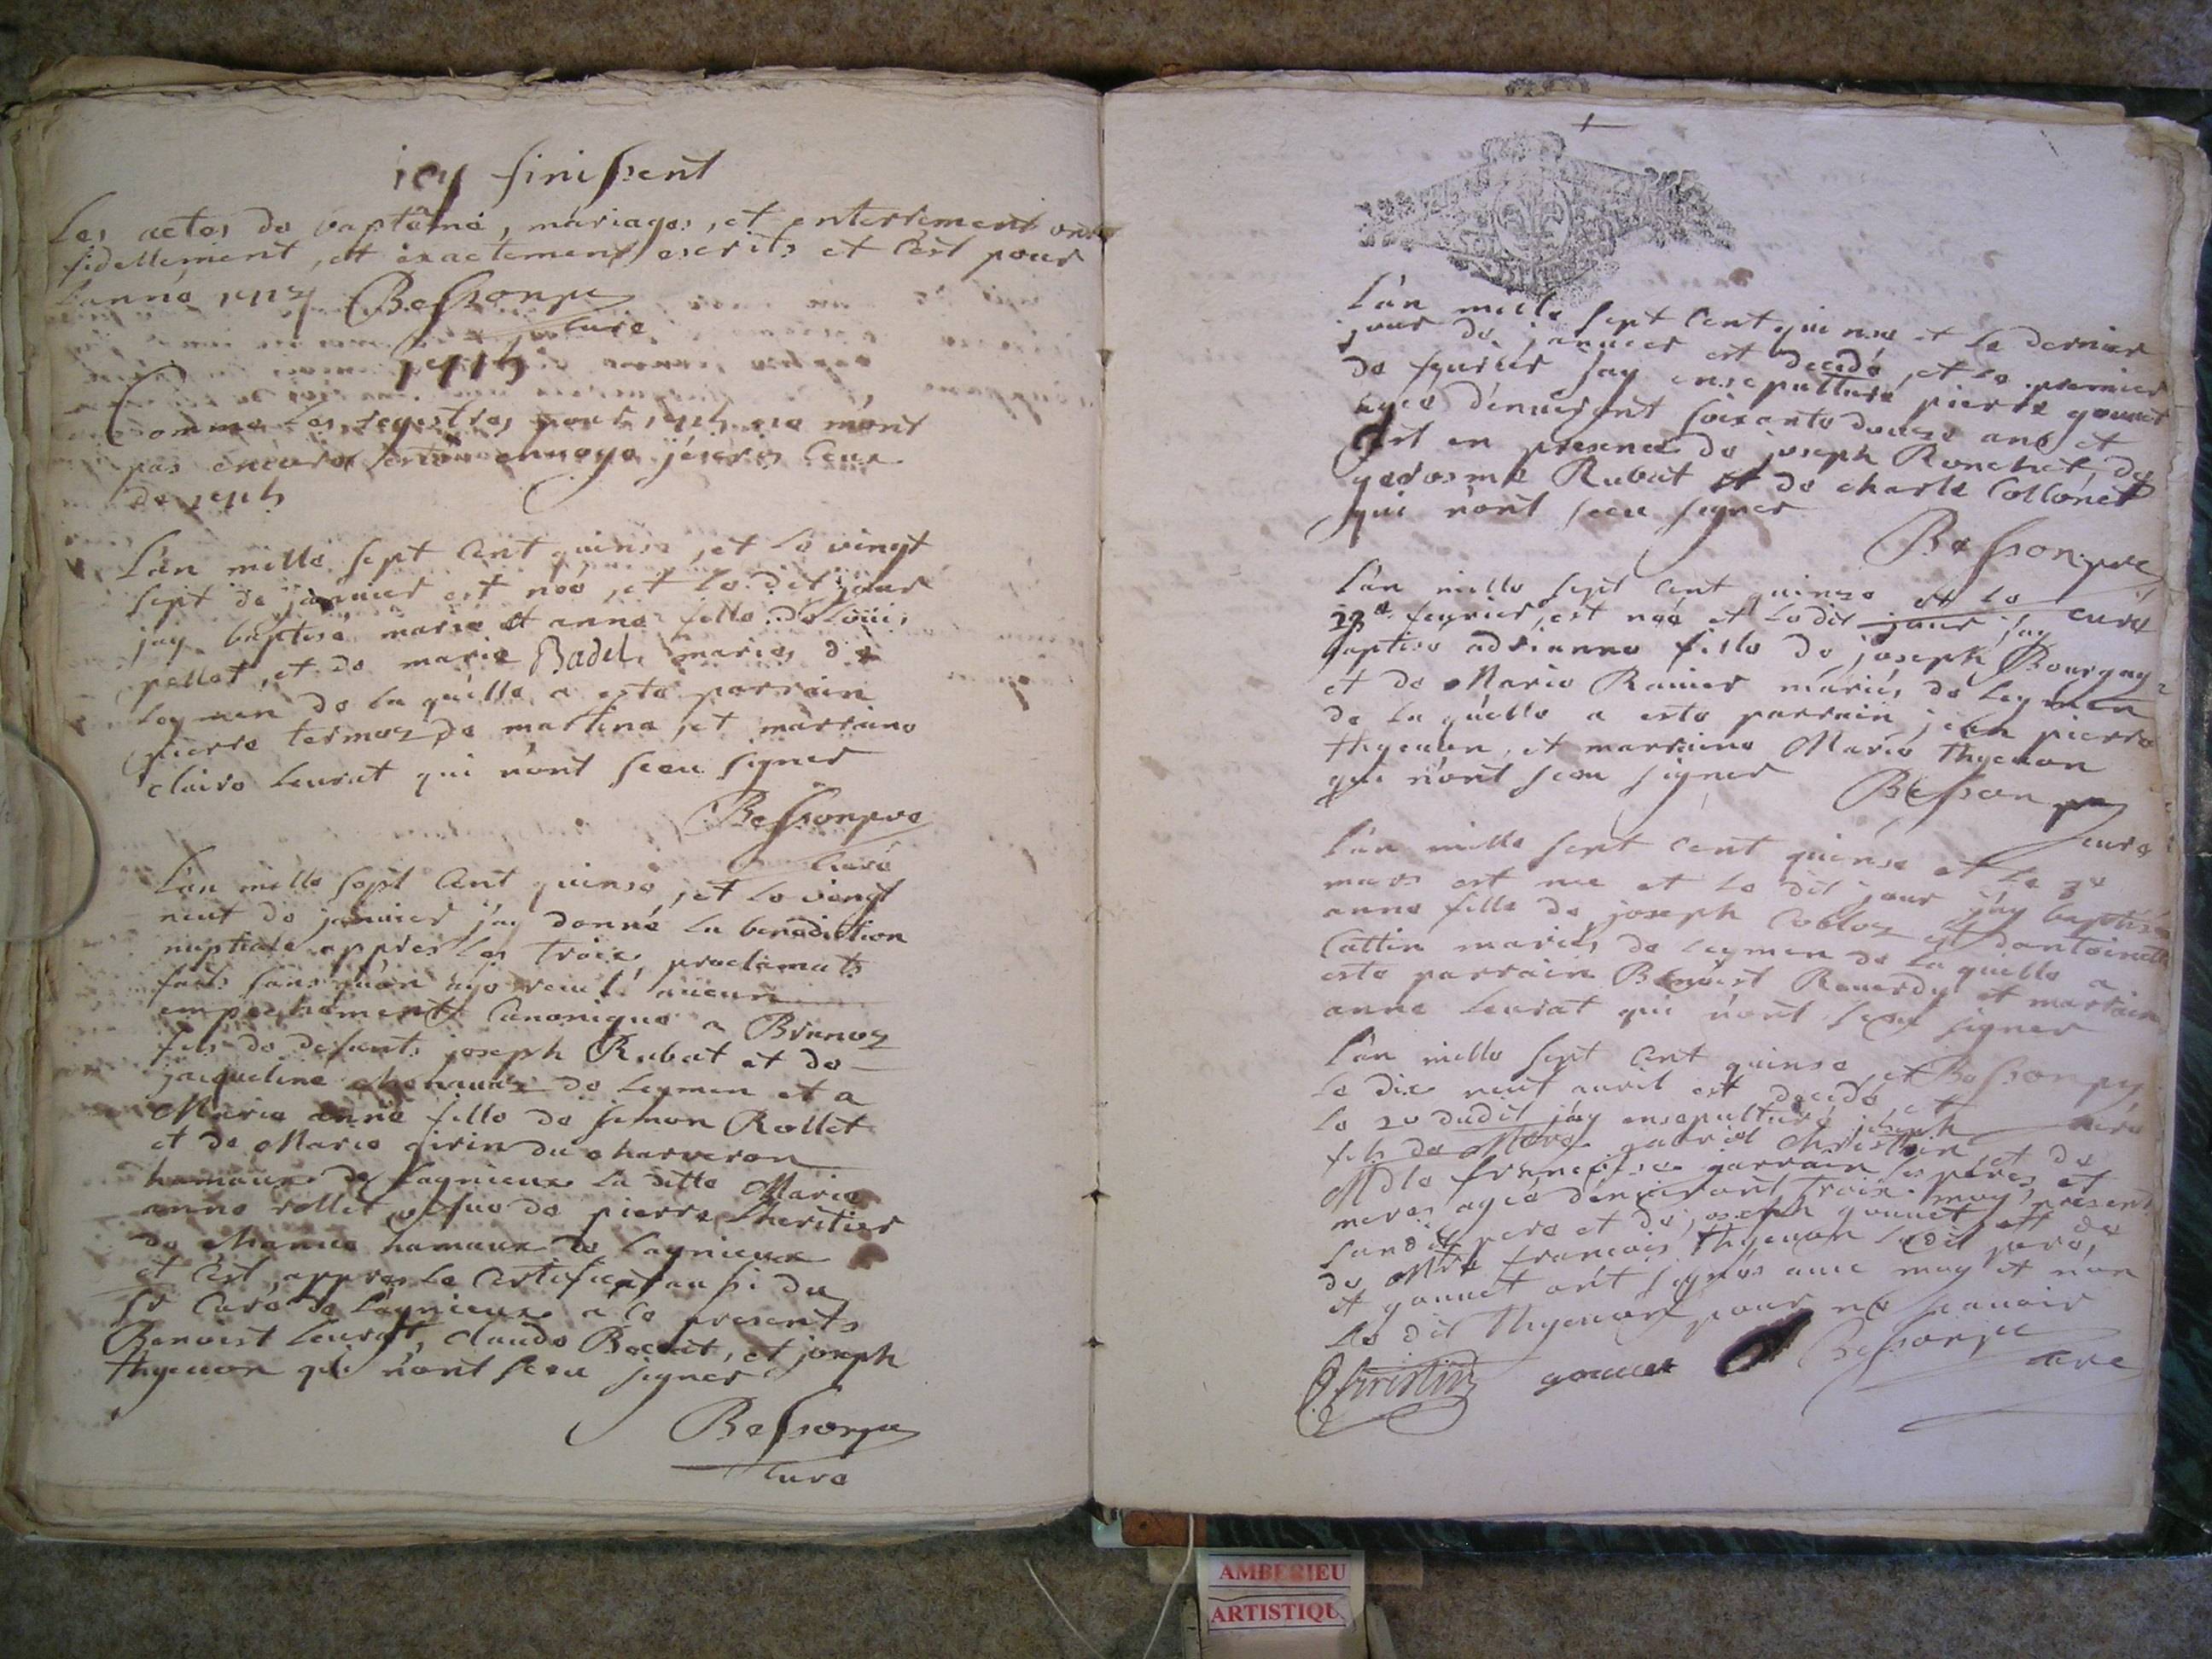 icy finissent
Les actes de baptême, mariages, et enterrement
fidellement, et exactement escrits et c'est pour
l'année 1714 Besson pre
curé
1715
Comme les registres pour 1715 ne m'ont
pas encore envoyé j'escris ceux
de 1715
L'an mille sept cent quinse, et le vingt
sept de janvier est néé, et le dit jour
jay baptisé marie et anne fille de Louis
pellet, et de marie Badel mariés de
Leymen de la quelle a esté parrain
pierre termoz de martina, et marraine
claire Leurat qui n'ont sceu signer
Besson pre
curé
L'an mille sept cent quinse, et le vingt
neuf de janvier j'ay donné la benediction
nuptiale appres les troix proclamats
faits sans qu'on aye aucun
empechement canonique a
fils de defunts joseph Rubat et de
jacqueline de Leymen et a
Marie anne fille de simon Rollet
et de Marie girin du charveron
hamaux de Lagnieux la ditte Marie
anne rollet vefue de pierre Lheritier
de hamaux de Lagnieux
et c'est appres le certificat aussi du
sr curé de Lagnieux a ce presents
Benoist Leurat, claude Bocuit, et joseph
thyeuon qui n'ont sceu signer
Besson pre
curé
L'an mille sept cent quinse et le dernier
jour de janvier est decedé, et le premier
de feurier jay ensepulturé pierre gonnet
agée d'enuiront soixante douze ans et
c'est en presence de joseph Ronchet, de
gerosme Rubat et de charle Collonet
qui n'ont sceu signer
Besson pre
curé
L'an mille sept cent quinse et le
feurier, est néé et le dit jour jay
baptisé adrianne fille de joseph
et de Marie Rauier mariés de Leymen
de la quelle a esté parrain jean pierre
thyeuon, et marraine Marie thyeuon
qui n'ont sceu signer
Besson pre
curé
L'an mille sept cent quinse et le 3e
mars est née et le dit jour j'ay baptisé
anne fille de joseph Cobloz et dantoinette
Cattin mariés de Leymen de la quelle a
esté parrain Benoist Reuerdy et marraine
anne Leurat qui n'ont sceu signer
Besson pre
curé
L'an mille sept cent quinse, et
le dix neuf auril est decedé, et
le 20 dudit j'ay ensepulturé joseph
fils de Mtre gabriel Christin, et de
Mdle francoise garrain ses peres, et
meres agée denuiront troix moys present
le dit pere et de joseph gonnet, et de
de Mtre francois thyeuon le dit pere,
et gonnet ont signés auec moy et non
le dit thyeuon pour ne scauoir
Christin gonnet Besson pre
curé
AMBERIEU
ARTISTIQU